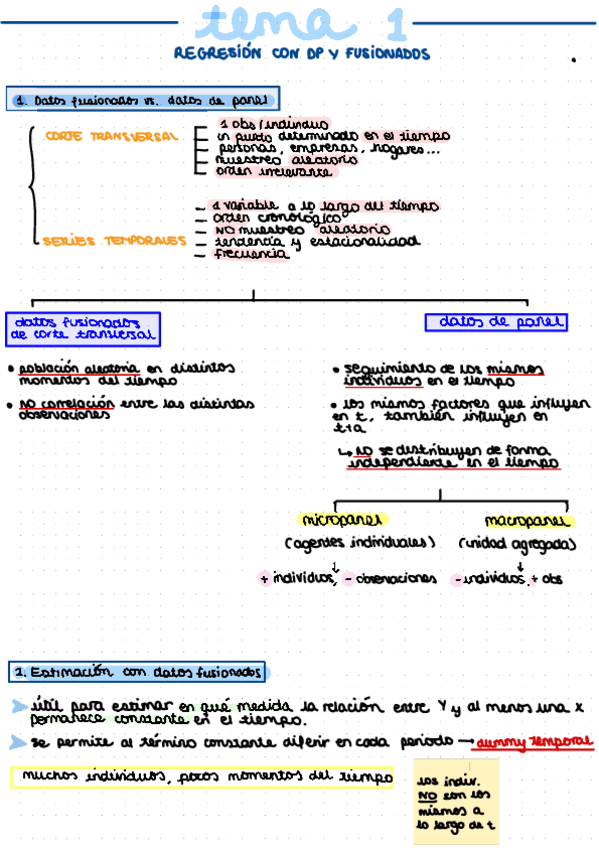 tema 1
REGRESIÓN CON DP Y FUSIONADOS
1. Datos fusionados vs. datos de panel
CORTE TRANSVERSAL
1 obs/individuo
in punto determinado en el tiempo
personas, empresas, hogares...
muestreo aleatorio
orden irrelevante
SERIES TEMPORALES
1 variable a lo largo del tiempo
orden cronológico
NO muestreo aleatorio
tendencia y estacionalidad
frecuencia
datos fusionados
de corte transversal
• población aleatoria en distintos
momentos del tiempo
• no correlación entre las distintas
observaciones
datos de panel
• seguimiento de los mismos
individuos en el tiempo
• los mismos factores que influyen
en t, también influyen en
t+1
↳ NO se distribuyen de forma
independiente en el tiempo
micropanel
(agentes individuales)
+ individuos, - observaciones
macropanel
(unidad agregada)
- individuos, + obs
2. Estimación con datos fusionados
➤ útil para estimar en qué medida la relación entre Y y al menos una x
permanece constante en el tiempo.
➤ se permite al término constante diferir en cada periodo → dummy temporal
muchos individuos, pocos momentos del tiempo
los indiv.
NO son los
mismos a
lo largo de t